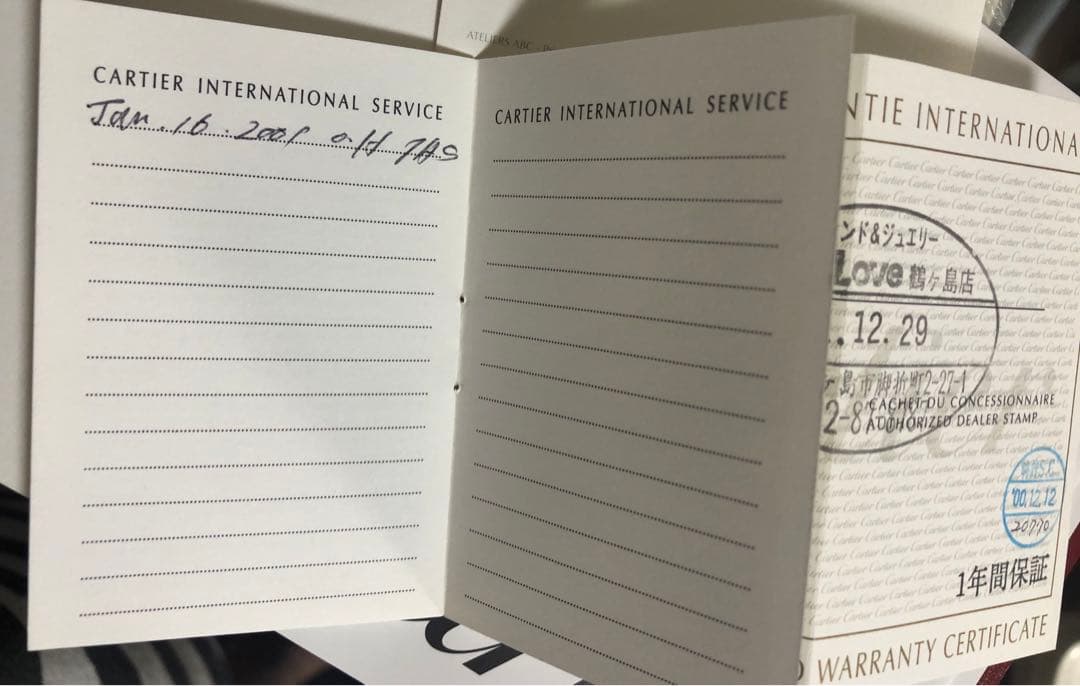 ATELIERS ABC
CARTIER INTERNATIONAL SERVICE
Jan. 16. 2001
CARTIER INTERNATIONAL SERVICE
NTIE INTERNATIONA
ンド&ジュエリー
Love 鶴ヶ島店
.12.29
ヶ島市脚折町2-27-1
2-8
CACHET DU CONCESSIONNAIRE
AUTHORIZED DEALER STAMP
'00.12.12
20770
1年間保証
WARRANTY CERTIFICATE